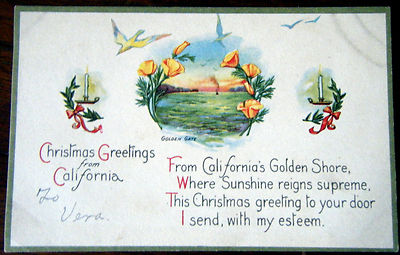 GOLDEN GATE
Christmas Greetings
from
California
To
Vera.
From California's Golden Shore,
Where Sunshine reigns supreme,
This Christmas greeting to your door
I send, with my esteem.